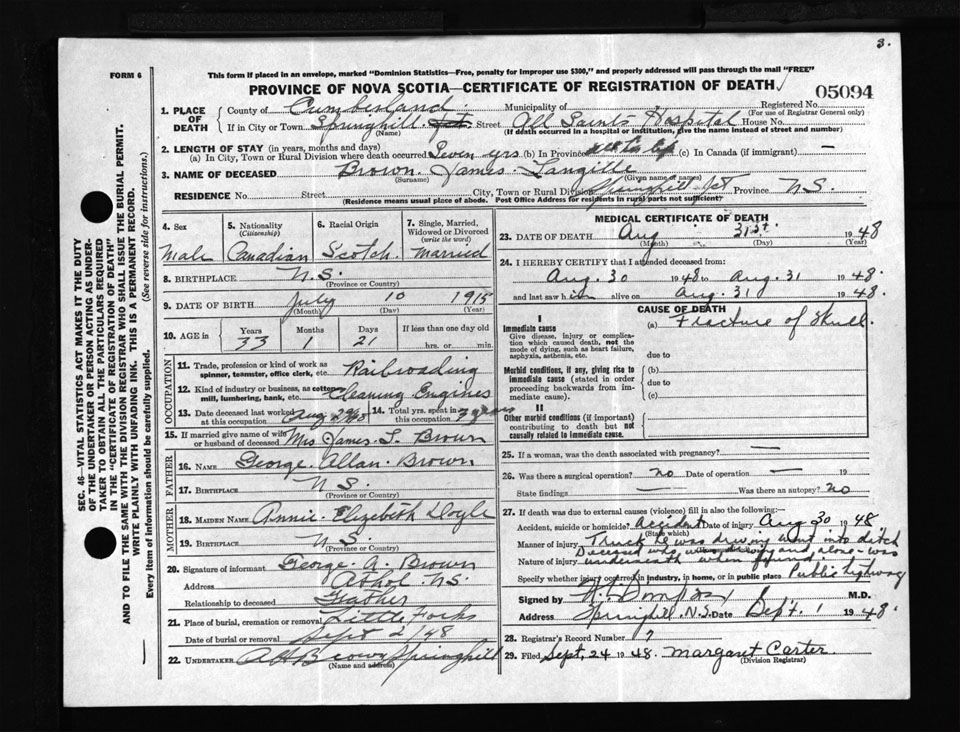 3.
FORM 6
This form if placed in an envelope, marked "Dominion Statistics—Free, penalty for improper use $300," and properly addressed will pass through the mail "FREE"
PROVINCE OF NOVA SCOTIA—CERTIFICATE OF REGISTRATION OF DEATH
05094
Registered No.
(For use of Registrar General only)
1. PLACE OF DEATH
County of Cumberland Municipality of
If in City or Town Springhill Street All Saints Hospital House No.
(Name) (If death occurred in a hospital or institution, give the name instead of street and number)
2. LENGTH OF STAY (in years, months and days)
(a) In City, Town or Rural Division where death occurred Seven yrs (b) In Province (c) In Canada (if immigrant) —
3. NAME OF DECEASED Brown James Langille
(Surname) (Given name or names)
RESIDENCE No. Street City, Town or Rural Division Springhill Jct Province N.S.
(Residence means usual place of abode. Post Office Address for residents in rural parts not sufficient)
4. Sex Male
5. Nationality (Citizenship) Canadian
6. Racial Origin Scotch
7. Single, Married, Widowed or Divorced (write the word) Married
8. BIRTHPLACE N.S.
(Province or Country)
9. DATE OF BIRTH July 10 1915
(Month) (Day) (Year)
10. AGE in Years Months Days If less than one day old
33 1 21 hrs. or min.
OCCUPATION
11. Trade, profession or kind of work as spinner, teamster, office clerk, etc. Railroading
12. Kind of industry or business, as cotton mill, lumbering, bank, etc. Cleaning Engines
13. Date deceased last worked at this occupation Aug 29/48
14. Total yrs. spent in this occupation 7 years
15. If married give name of wife or husband of deceased Mrs James L Brown
FATHER
16. NAME George Allan Brown
17. BIRTHPLACE N.S.
(Province or Country)
MOTHER
18. MAIDEN NAME Annie Elizebeth Doyle
19. BIRTHPLACE N.S.
(Province or Country)
20. Signature of informant George A. Brown
Address Athol N.S.
Relationship to deceased Father
21. Place of burial, cremation or removal Little Forks
Date of burial or removal Sept 2/48
22. UNDERTAKER A H Brown Springhill
(Name and address)
MEDICAL CERTIFICATE OF DEATH
23. DATE OF DEATH Aug 31st. 1948
(Month) (Day) (Year)
24. I HEREBY CERTIFY that I attended deceased from
Aug. 30 1948 to Aug. 31 1948.
and last saw him alive on Aug. 31 1948.
CAUSE OF DEATH
I
Immediate cause
Give disease, injury or complication which caused death, not the mode of dying, such as heart failure, asphyxia, asthenia, etc.
(a) Fracture of Skull.
due to
Morbid conditions, if any, giving rise to immediate cause (stated in order proceeding backwards from immediate cause).
(b)
due to
(c)
II
Other morbid conditions (if important) contributing to death but not causally related to immediate cause.
25. If a woman, was the death associated with pregnancy? —
26. Was there a surgical operation? no Date of operation — 19
State findings — Was there an autopsy? no
27. If death was due to external causes (violence) fill in also the following:—
Accident, suicide or homicide? Accident Date of injury Aug 30 1948.
(State which)
Manner of injury Truck he was driving went into ditch
Deceased who was driving and alone was
Nature of injury underneath when found.
Specify whether injury occurred in industry, in home, or in public place Public highway
Signed by M.D.
Address Springhill, N.S. Date Sept. 1 1948.
28. Registrar's Record Number 7
29. Filed Sept. 24 1948. Margaret Carter
(Division Registrar)
SEC. 46—VITAL STATISTICS ACT MAKES IT THE DUTY
OF THE UNDERTAKER OR PERSON ACTING AS UNDER-
TAKER TO OBTAIN ALL THE PARTICULARS REQUIRED
IN THE "CERTIFICATE OF REGISTRATION OF DEATH"
AND TO FILE THE SAME WITH THE DIVISION REGISTRAR WHO SHALL ISSUE THE BURIAL PERMIT.
WRITE PLAINLY WITH UNFADING INK. THIS IS A PERMANENT RECORD.
Every item of information should be carefully supplied. (See reverse side for instructions.)